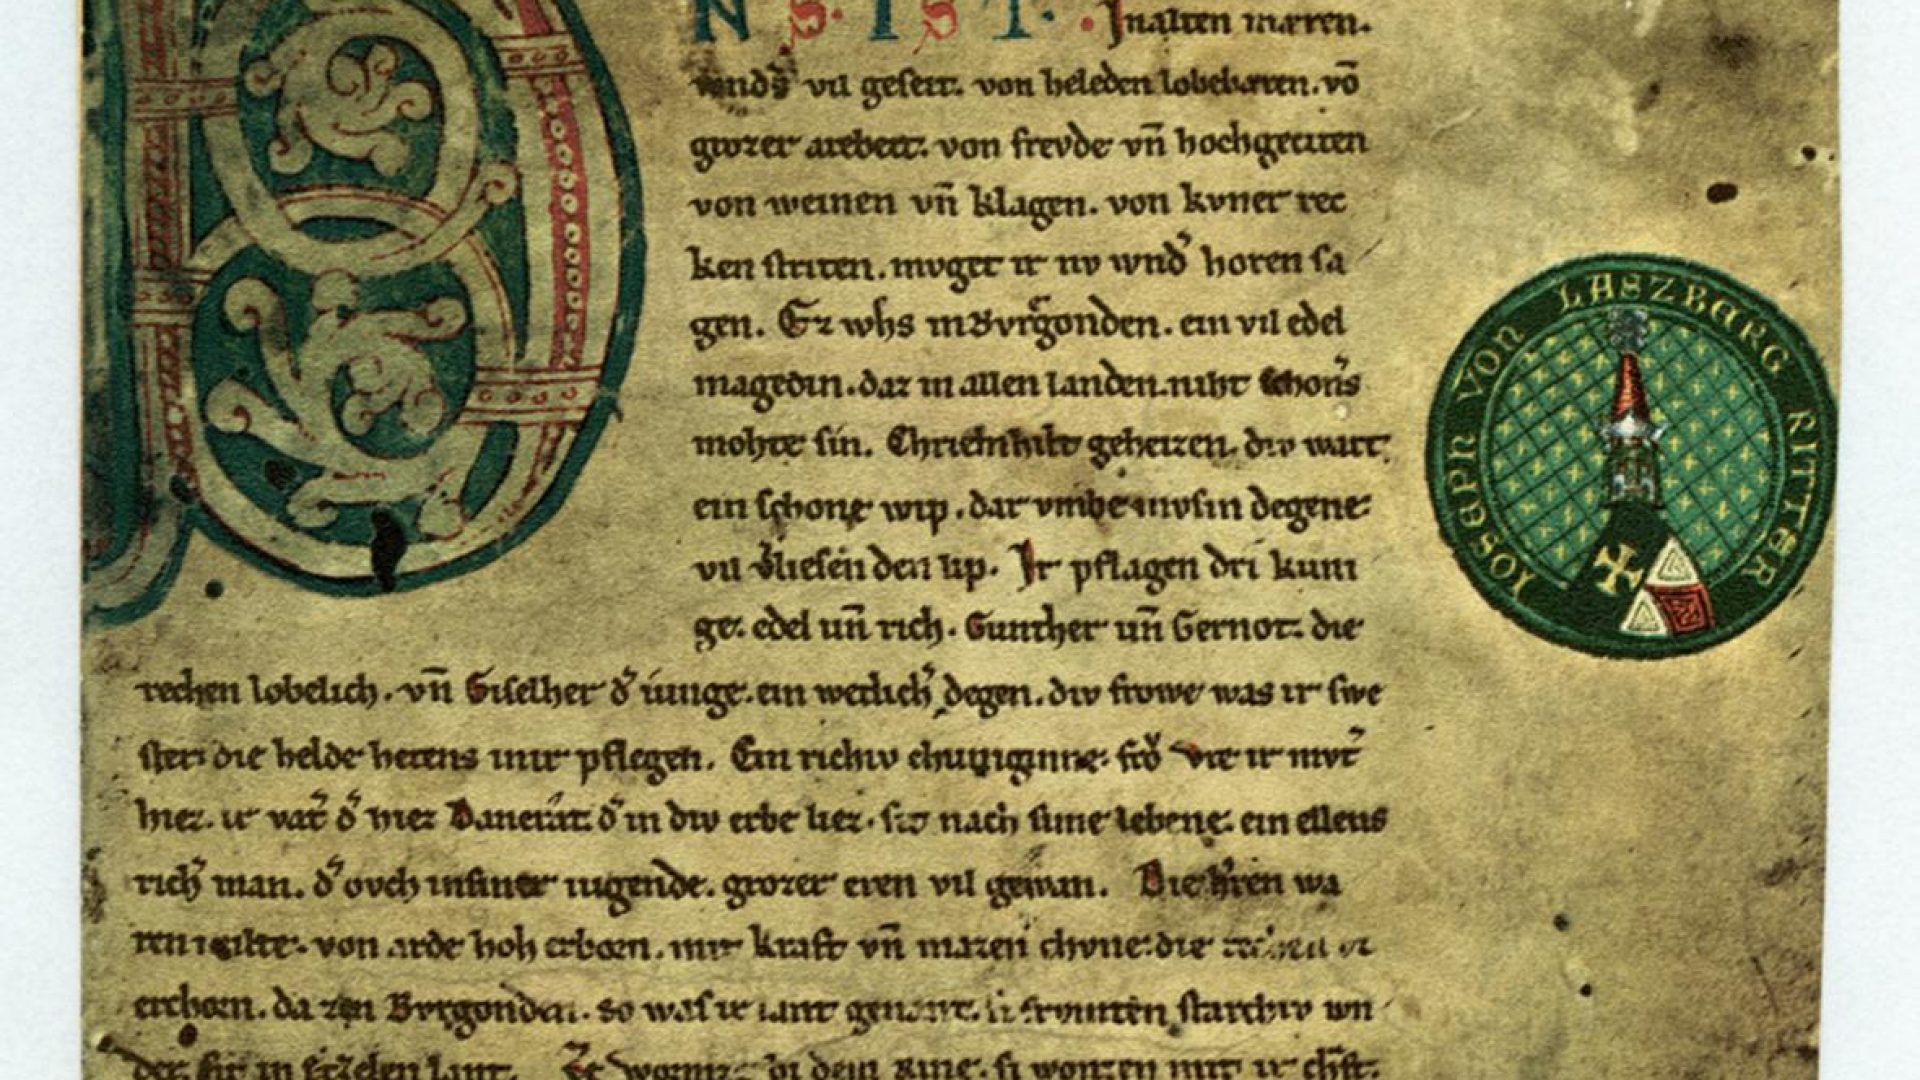 NS. IST. Jn alten mæren.
wnds vil geseit. von heleden lobebæren. võ
grozer arebeit. von frevde vñ hochgeciten
von weinen vñ klagen. von kvner rec
ken striten. mvget ir nv wnď horen sa
gen. Ez whs in Bvrgonden. ein vil edel
magedin. daz in allen landen niht schoners
mohte sin. Chriemhilt geheizen. div wart
ein schone wip. dar vmbe mvsin degene
vil vliesen den lip. Jr pflagen dri kuni
ge. edel uñ rich. Gunther uñ Gernot. die
rechen lobelich. vñ Giselher ď iunge. ein wetlich degen. div frowe was ir swe
ster. die helde hetens inir pflegen. Ein richiv chuniginne. frŏ ir mvt
hiez. ir vat ď hiez Dancrat. ď in div erbe liez. sit nach sime lebene. ein ellens
rich man. ď ovch in siner iugende. grozer eren vil gewan. Die hren wa
ren milte. von arde hoh erborn. mit kraft vñ mazen chvne. die rechen vz
erchorn. da zen Bvrgonden. so was ir lant genant. si frvmten starchiv wn
der. sit in Ezelen lant. Ze Wormz bi dem Rine. si wonten mit ir chraft.
JOSEPH VON LASZBERG RITTER